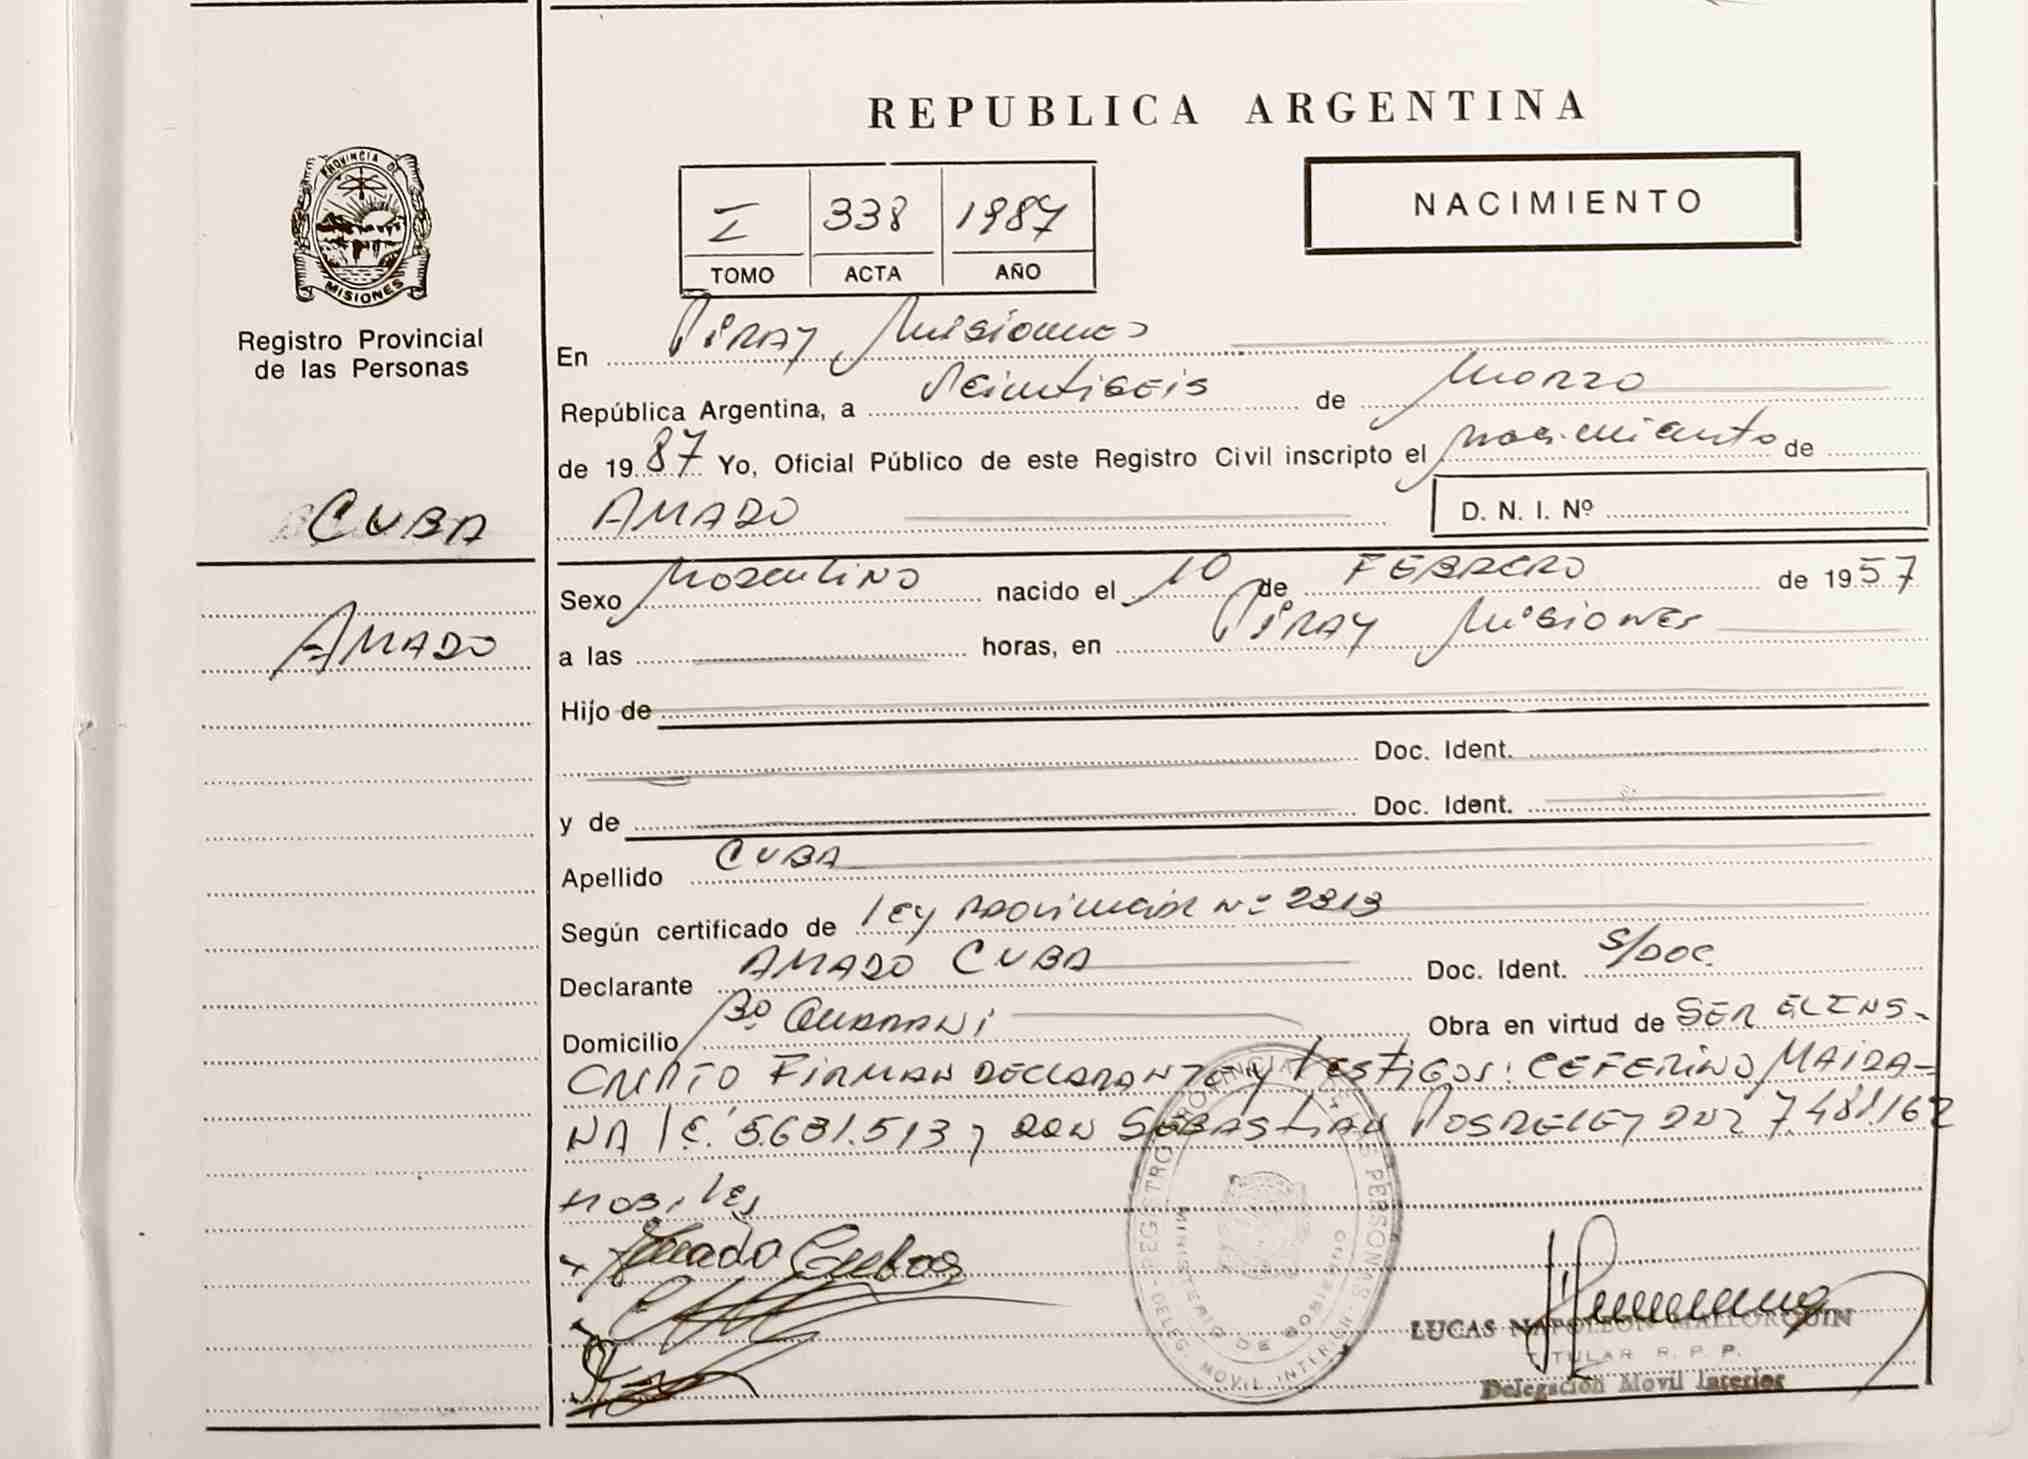 REPUBLICA ARGENTINA
PROVINCIA DE
MISIONES
Registro Provincial
de las Personas
CUBA
AMADO
I 338 1987
TOMO ACTA AÑO
NACIMIENTO
En Piray Misiones
República Argentina, a Veintiseis de Marzo
de 1987 Yo, Oficial Público de este Registro Civil inscripto el nacimiento de
AMADO D. N. I. Nº
Sexo Masculino nacido el 10 de FEBRERO de 1957
a las horas, en Piray Misiones
Hijo de
Doc. Ident.
y de Doc. Ident.
Apellido CUBA
Según certificado de Ley Provincial Nº 2313
Declarante AMADO CUBA Doc. Ident. S/DOC
Domicilio Bº Guarani Obra en virtud de SER EL INS-
CRIPTO FIRMAN DECLARANTE y testigos: CEFERINO MAIDA-
NA 5.631.513 y DON SEBASTIAN 7.481.162
Habiles
Amado Cubas
REGISTRO PROVINCIAL DE LAS PERSONAS
MINISTERIO DE GOBIERNO
DELEG. MOVIL INTERIOR
LUCAS NAPOLEON MALLORQUIN
TITULAR R. P. P.
Delegación Movil Interior